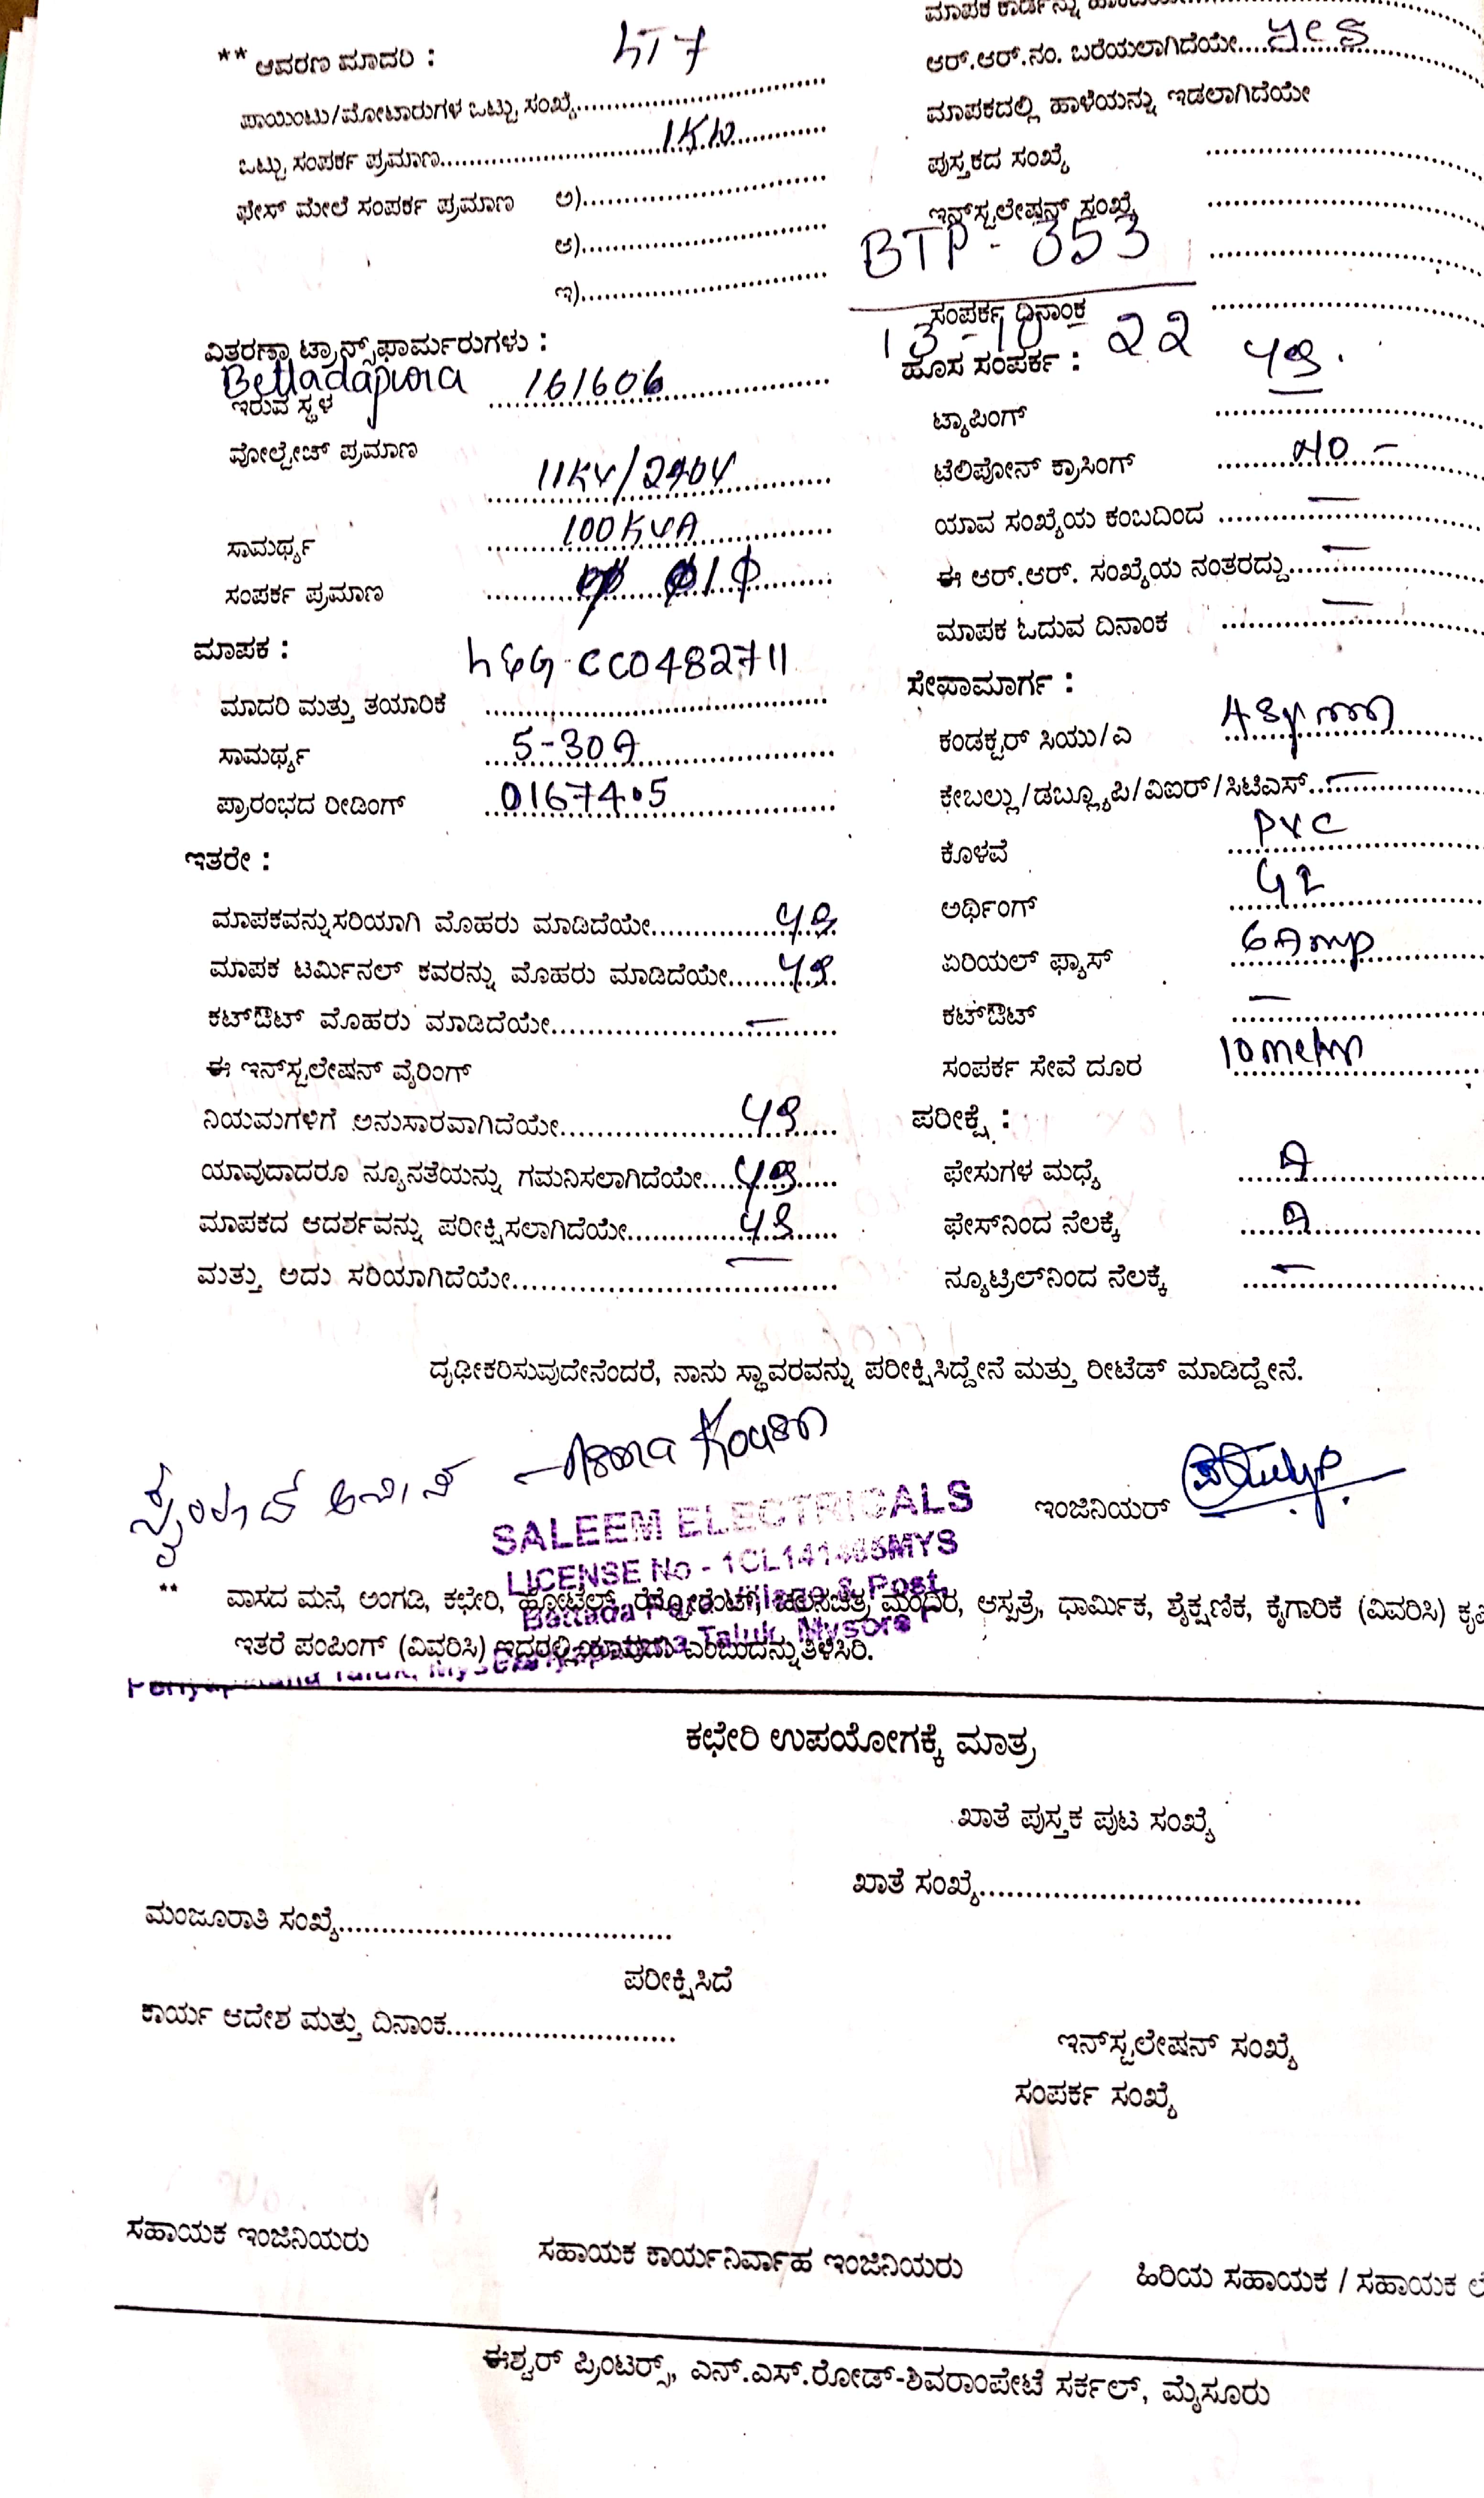 ಮಾಪಕ ಕಾರ್ಡನ್ನು
** ಆವರಣ ಮಾದರಿ : LT7
ಪಾಯಿಂಟು/ಮೋಟಾರುಗಳ ಒಟ್ಟು ಸಂಖ್ಯೆ
ಒಟ್ಟು ಸಂಪರ್ಕ ಪ್ರಮಾಣ 1KW
ಫೇಸ್ ಮೇಲೆ ಸಂಪರ್ಕ ಪ್ರಮಾಣ ಅ)
ಆ)
ಇ)
ವಿತರಣಾ ಟ್ರಾನ್ಸ್‌ಫಾರ್ಮರುಗಳು :
Bettadapura 161606
ಇರುವ ಸ್ಥಳ
ವೋಲ್ಟೇಚ್ ಪ್ರಮಾಣ
11KV/240V
ಸಾಮರ್ಥ್ಯ 100KVA
ಸಂಪರ್ಕ ಪ್ರಮಾಣ
ಮಾಪಕ :
ಮಾದರಿ ಮತ್ತು ತಯಾರಿಕೆ L&G CC0482711
ಸಾಮರ್ಥ್ಯ 5-30A
ಪ್ರಾರಂಭದ ರೀಡಿಂಗ್ 01674.5
ಇತರೇ :
ಮಾಪಕವನ್ನುಸರಿಯಾಗಿ ಮೊಹರು ಮಾಡಿದೆಯೇ
ಮಾಪಕ ಟರ್ಮಿನಲ್ ಕವರನ್ನು ಮೊಹರು ಮಾಡಿದೆಯೇ
ಕಟ್‌ಔಟ್ ಮೊಹರು ಮಾಡಿದೆಯೇ
ಈ ಇನ್‌ಸ್ಟಲೇಷನ್ ವೈರಿಂಗ್
ನಿಯಮಗಳಿಗೆ ಅನುಸಾರವಾಗಿದೆಯೇ
ಯಾವುದಾದರೂ ನ್ಯೂನತೆಯನ್ನು ಗಮನಿಸಲಾಗಿದೆಯೇ
ಮಾಪಕದ ಆದರ್ಶವನ್ನು ಪರೀಕ್ಷಿಸಲಾಗಿದೆಯೇ
ಮತ್ತು ಅದು ಸರಿಯಾಗಿದೆಯೇ
ಆರ್.ಆರ್.ನಂ. ಬರೆಯಲಾಗಿದೆಯೇ yes
ಮಾಪಕದಲ್ಲಿ ಹಾಳೆಯನ್ನು ಇಡಲಾಗಿದೆಯೇ
ಪುಸ್ತಕದ ಸಂಖ್ಯೆ
ಇನ್‌ಸ್ಟಲೇಷನ್ ಸಂಖ್ಯೆ
BTP - 353
ಸಂಪರ್ಕ ದಿನಾಂಕ
13-10-22
ಹೊಸ ಸಂಪರ್ಕ :
ಟ್ಯಾಪಿಂಗ್
ಟೆಲಿಫೋನ್ ಕ್ರಾಸಿಂಗ್ NO -
ಯಾವ ಸಂಖ್ಯೆಯ ಕಂಬದಿಂದ
ಈ ಆರ್.ಆರ್. ಸಂಖ್ಯೆಯ ನಂತರದ್ದು
ಮಾಪಕ ಓದುವ ದಿನಾಂಕ
ಸೇಫಾಮಾರ್ಗ :
ಕಂಡಕ್ಟರ್ ಸಿಯು/ಎ
ಕೇಬಲ್ಲು/ಡಬ್ಲ್ಯೂಪಿ/ವಿಐರ್/ಸಿಟಿಎಸ್
ಕೊಳವೆ PVC
ಅರ್ಥಿಂಗ್ GI
ಏರಿಯಲ್ ಫ್ಯೂಸ್ 6Amp
ಕಟ್‌ಔಟ್
ಸಂಪರ್ಕ ಸೇವೆ ದೂರ 10meter
ಪರೀಕ್ಷೆ :
ಫೇಸುಗಳ ಮಧ್ಯೆ
ಫೇಸ್‌ನಿಂದ ನೆಲಕ್ಕೆ
ನ್ಯೂಟ್ರಲ್‌ನಿಂದ ನೆಲಕ್ಕೆ
ದೃಢೀಕರಿಸುವುದೇನೆಂದರೆ, ನಾನು ಸ್ಥಾವರವನ್ನು ಪರೀಕ್ಷಿಸಿದ್ದೇನೆ ಮತ್ತು ರೀಟೆಡ್ ಮಾಡಿದ್ದೇನೆ.
ಇಂಜಿನಿಯರ್
SALEEM ELECTRICALS
LICENSE No - 1CL141485MYS
** ವಾಸದ ಮನೆ, ಅಂಗಡಿ, ಕಛೇರಿ, ಹೋಟೆಲ್, ರೆಸ್ಟೋರೆಂಟ್, ಚಲನಚಿತ್ರ ಮಂದಿರ, ಆಸ್ಪತ್ರೆ, ಧಾರ್ಮಿಕ, ಶೈಕ್ಷಣಿಕ, ಕೈಗಾರಿಕೆ (ವಿವರಿಸಿ)
Village & Post,
ಇತರೆ ಪಂಪಿಂಗ್ (ವಿವರಿಸಿ) ಇದರಲ್ಲಿ ಯಾವುದು ಎಂಬುದನ್ನುತಿಳಿಸಿರಿ.
Taluk, Mysore
ಕಛೇರಿ ಉಪಯೋಗಕ್ಕೆ ಮಾತ್ರ
ಖಾತೆ ಪುಸ್ತಕ ಪುಟ ಸಂಖ್ಯೆ
ಖಾತೆ ಸಂಖ್ಯೆ
ಮಂಜೂರಾತಿ ಸಂಖ್ಯೆ
ಪರೀಕ್ಷಿಸಿದೆ
ಕಾರ್ಯ ಆದೇಶ ಮತ್ತು ದಿನಾಂಕ
ಇನ್‌ಸ್ಟಲೇಷನ್ ಸಂಖ್ಯೆ
ಸಂಪರ್ಕ ಸಂಖ್ಯೆ
ಸಹಾಯಕ ಇಂಜಿನಿಯರು
ಸಹಾಯಕ ಕಾರ್ಯನಿರ್ವಾಹ ಇಂಜಿನಿಯರು
ಹಿರಿಯ ಸಹಾಯಕ / ಸಹಾಯಕ
ಈಶ್ವರ್ ಪ್ರಿಂಟರ‍್ಸ್, ಎನ್.ಎಸ್.ರೋಡ್-ಶಿವರಾಂಪೇಟೆ ಸರ್ಕಲ್, ಮೈಸೂರು